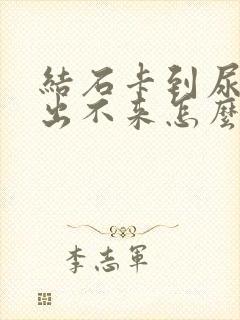 結石卡到尿
出不来怎麼
李志軍